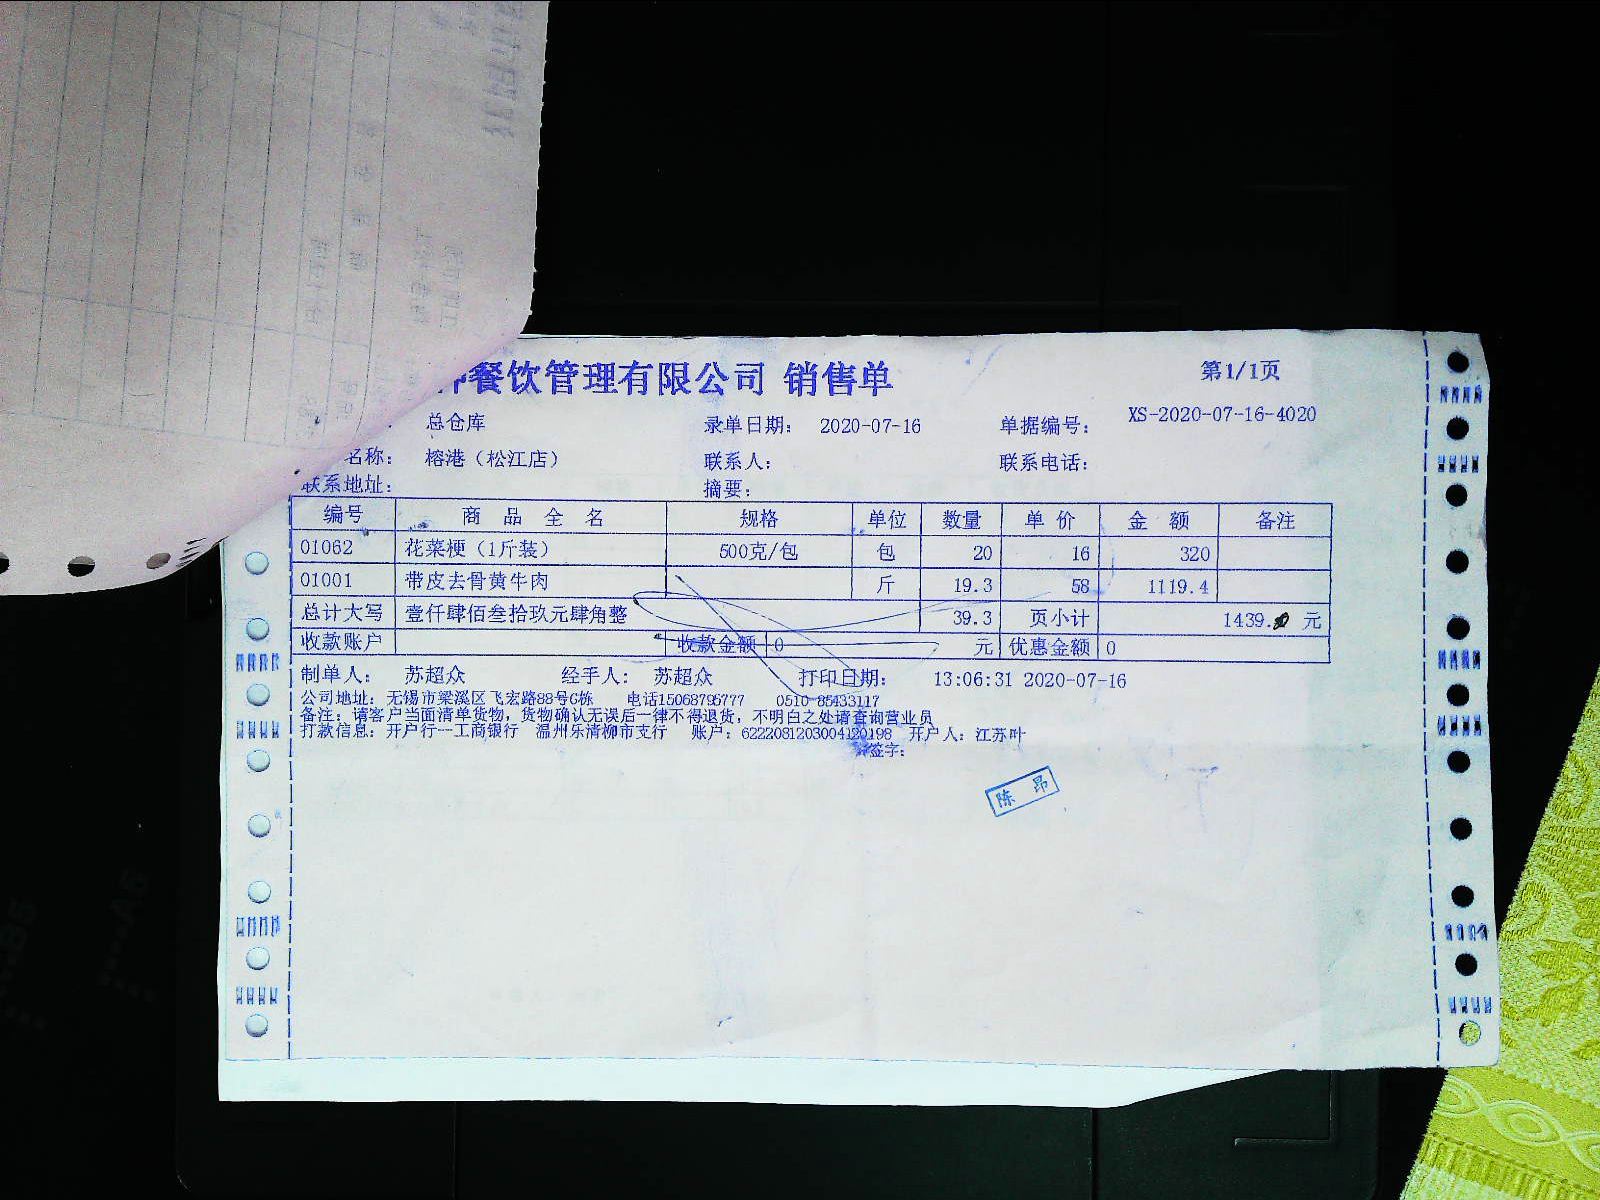 餐饮管理有限公司 销售单 第1/1页
总仓库 录单日期： 2020-07-16 单据编号： XS-2020-07-16-4020
名称： 榕港（松江店） 联系人： 联系电话：
联系地址： 摘要：
编号 商 品 全 名 规格 单位 数量 单 价 金 额 备注
01062 花菜梗（1斤装） 500克/包 包 20 16 320
01001 带皮去骨黄牛肉 斤 19.3 58 1119.4
总计大写 壹仟肆佰叁拾玖元肆角整 39.3 页小计 1439. 元
收款账户 收款金额 0 元 优惠金额 0
制单人： 苏超众 经手人： 苏超众 打印日期： 13:06:31 2020-07-16
公司地址：无锡市梁溪区飞宏路88号G栋 电话15068795777 0510-85433117
备注：请客户当面清单货物，货物确认无误后一律不得退货，不明白之处请查询营业员
打款信息：开户行--工商银行 温州乐清柳市支行 账户：6222081203004120198 开户人：江苏叶
签字：
陈 昂